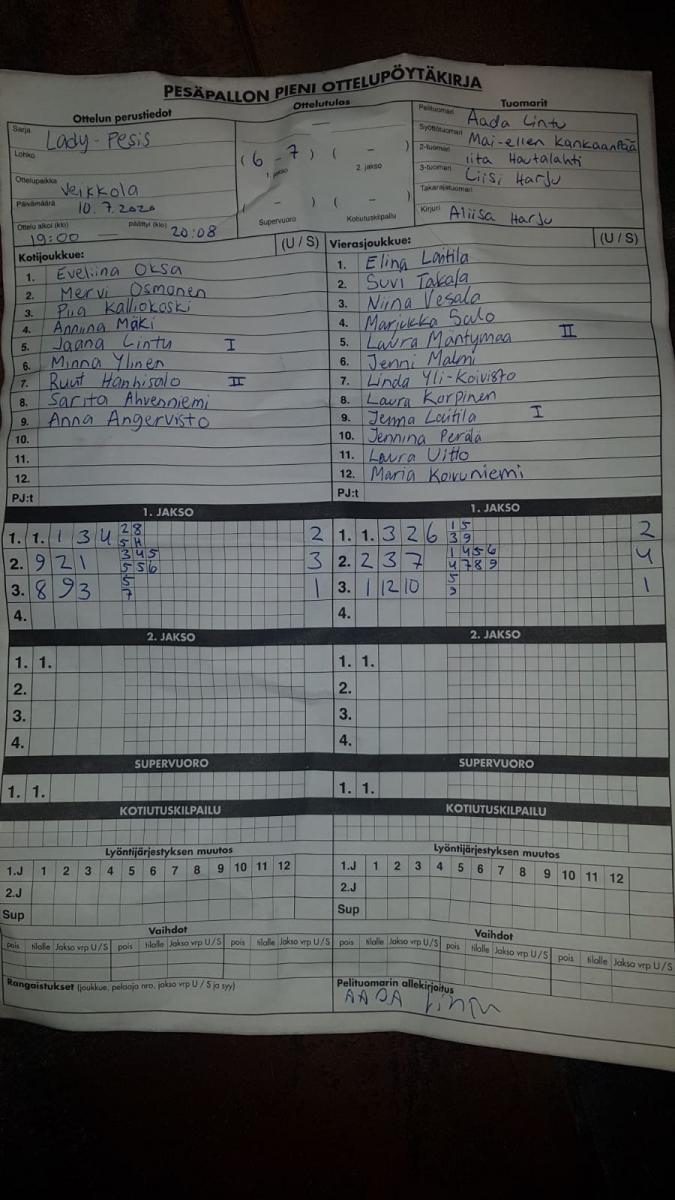 PESÄPALLON PIENI OTTELUPÖYTÄKIRJA
Ottelun perustiedot
Sarja Lady-Pesis
Lohko
Ottelupaikka Veikkola
Päivämäärä 10.7.2020
Ottelu alkoi (klo) 19:00 päättyi (klo) 20:08
Ottelutulos
( 6 - 7 ) ( - )
1. jakso 2. jakso
( - ) ( - )
Supervuoro Kotiutuskilpailu
Tuomarit
Pelituomari Aada Lintu
Syöttötuomari Mai-ellen Kankaanpää
2-tuomari Iita Hautalahti
3-tuomari Liisi Harju
Takarajatuomari
Kirjuri Aliisa Harju
Kotijoukkue: (U / S)
1. Eveliina Oksa
2. Mervi Osmonen
3. Piia Kalliokoski
4. Anniina Mäki
5. Jaana Lintu I
6. Minna Ylinen
7. Ruut Hanhisalo II
8. Sarita Ahvenniemi
9. Anna Angervisto
10.
11.
12.
PJ:t
Vierasjoukkue: (U / S)
1. Elina Laitila
2. Suvi Takala
3. Niina Vesala
4. Marjukka Salo
5. Laura Mäntymaa II
6. Jenni Malmi
7. Linda Yli-Koivisto
8. Laura Korpinen
9. Jenna Laitila I
10. Jennina Perälä
11. Laura Uitto
12. Maria Koivuniemi
PJ:t
1. JAKSO
1. 1. 1 3 4 2 8 2
5 H
2. 9 2 1 3 4 5 3
5 5 6
3. 8 9 3 5 1
7
4.
2. JAKSO
1. 1.
2.
3.
4.
SUPERVUORO
1. 1.
KOTIUTUSKILPAILU
Lyöntijärjestyksen muutos
1.J 1 2 3 4 5 6 7 8 9 10 11 12
2.J
Sup
Vaihdot
pois tilalle Jakso vrp U / S pois tilalle Jakso vrp U / S pois tilalle Jakso vrp U / S
Rangaistukset (joukkue, pelaaja nro, jakso vrp U / S ja syy)
1. JAKSO
1. 1. 3 2 6 1 5 2
3 9
2. 2 3 7 1 4 5 6 4
4 7 8 9
3. 1 12 10 5 1
4.
2. JAKSO
1. 1.
2.
3.
4.
SUPERVUORO
1. 1.
KOTIUTUSKILPAILU
Lyöntijärjestyksen muutos
1.J 1 2 3 4 5 6 7 8 9 10 11 12
2.J
Sup
Vaihdot
pois tilalle Jakso vrp U / S pois tilalle Jakso vrp U / S pois tilalle Jakso vrp U / S
Pelituomarin allekirjoitus
AADA Lintu